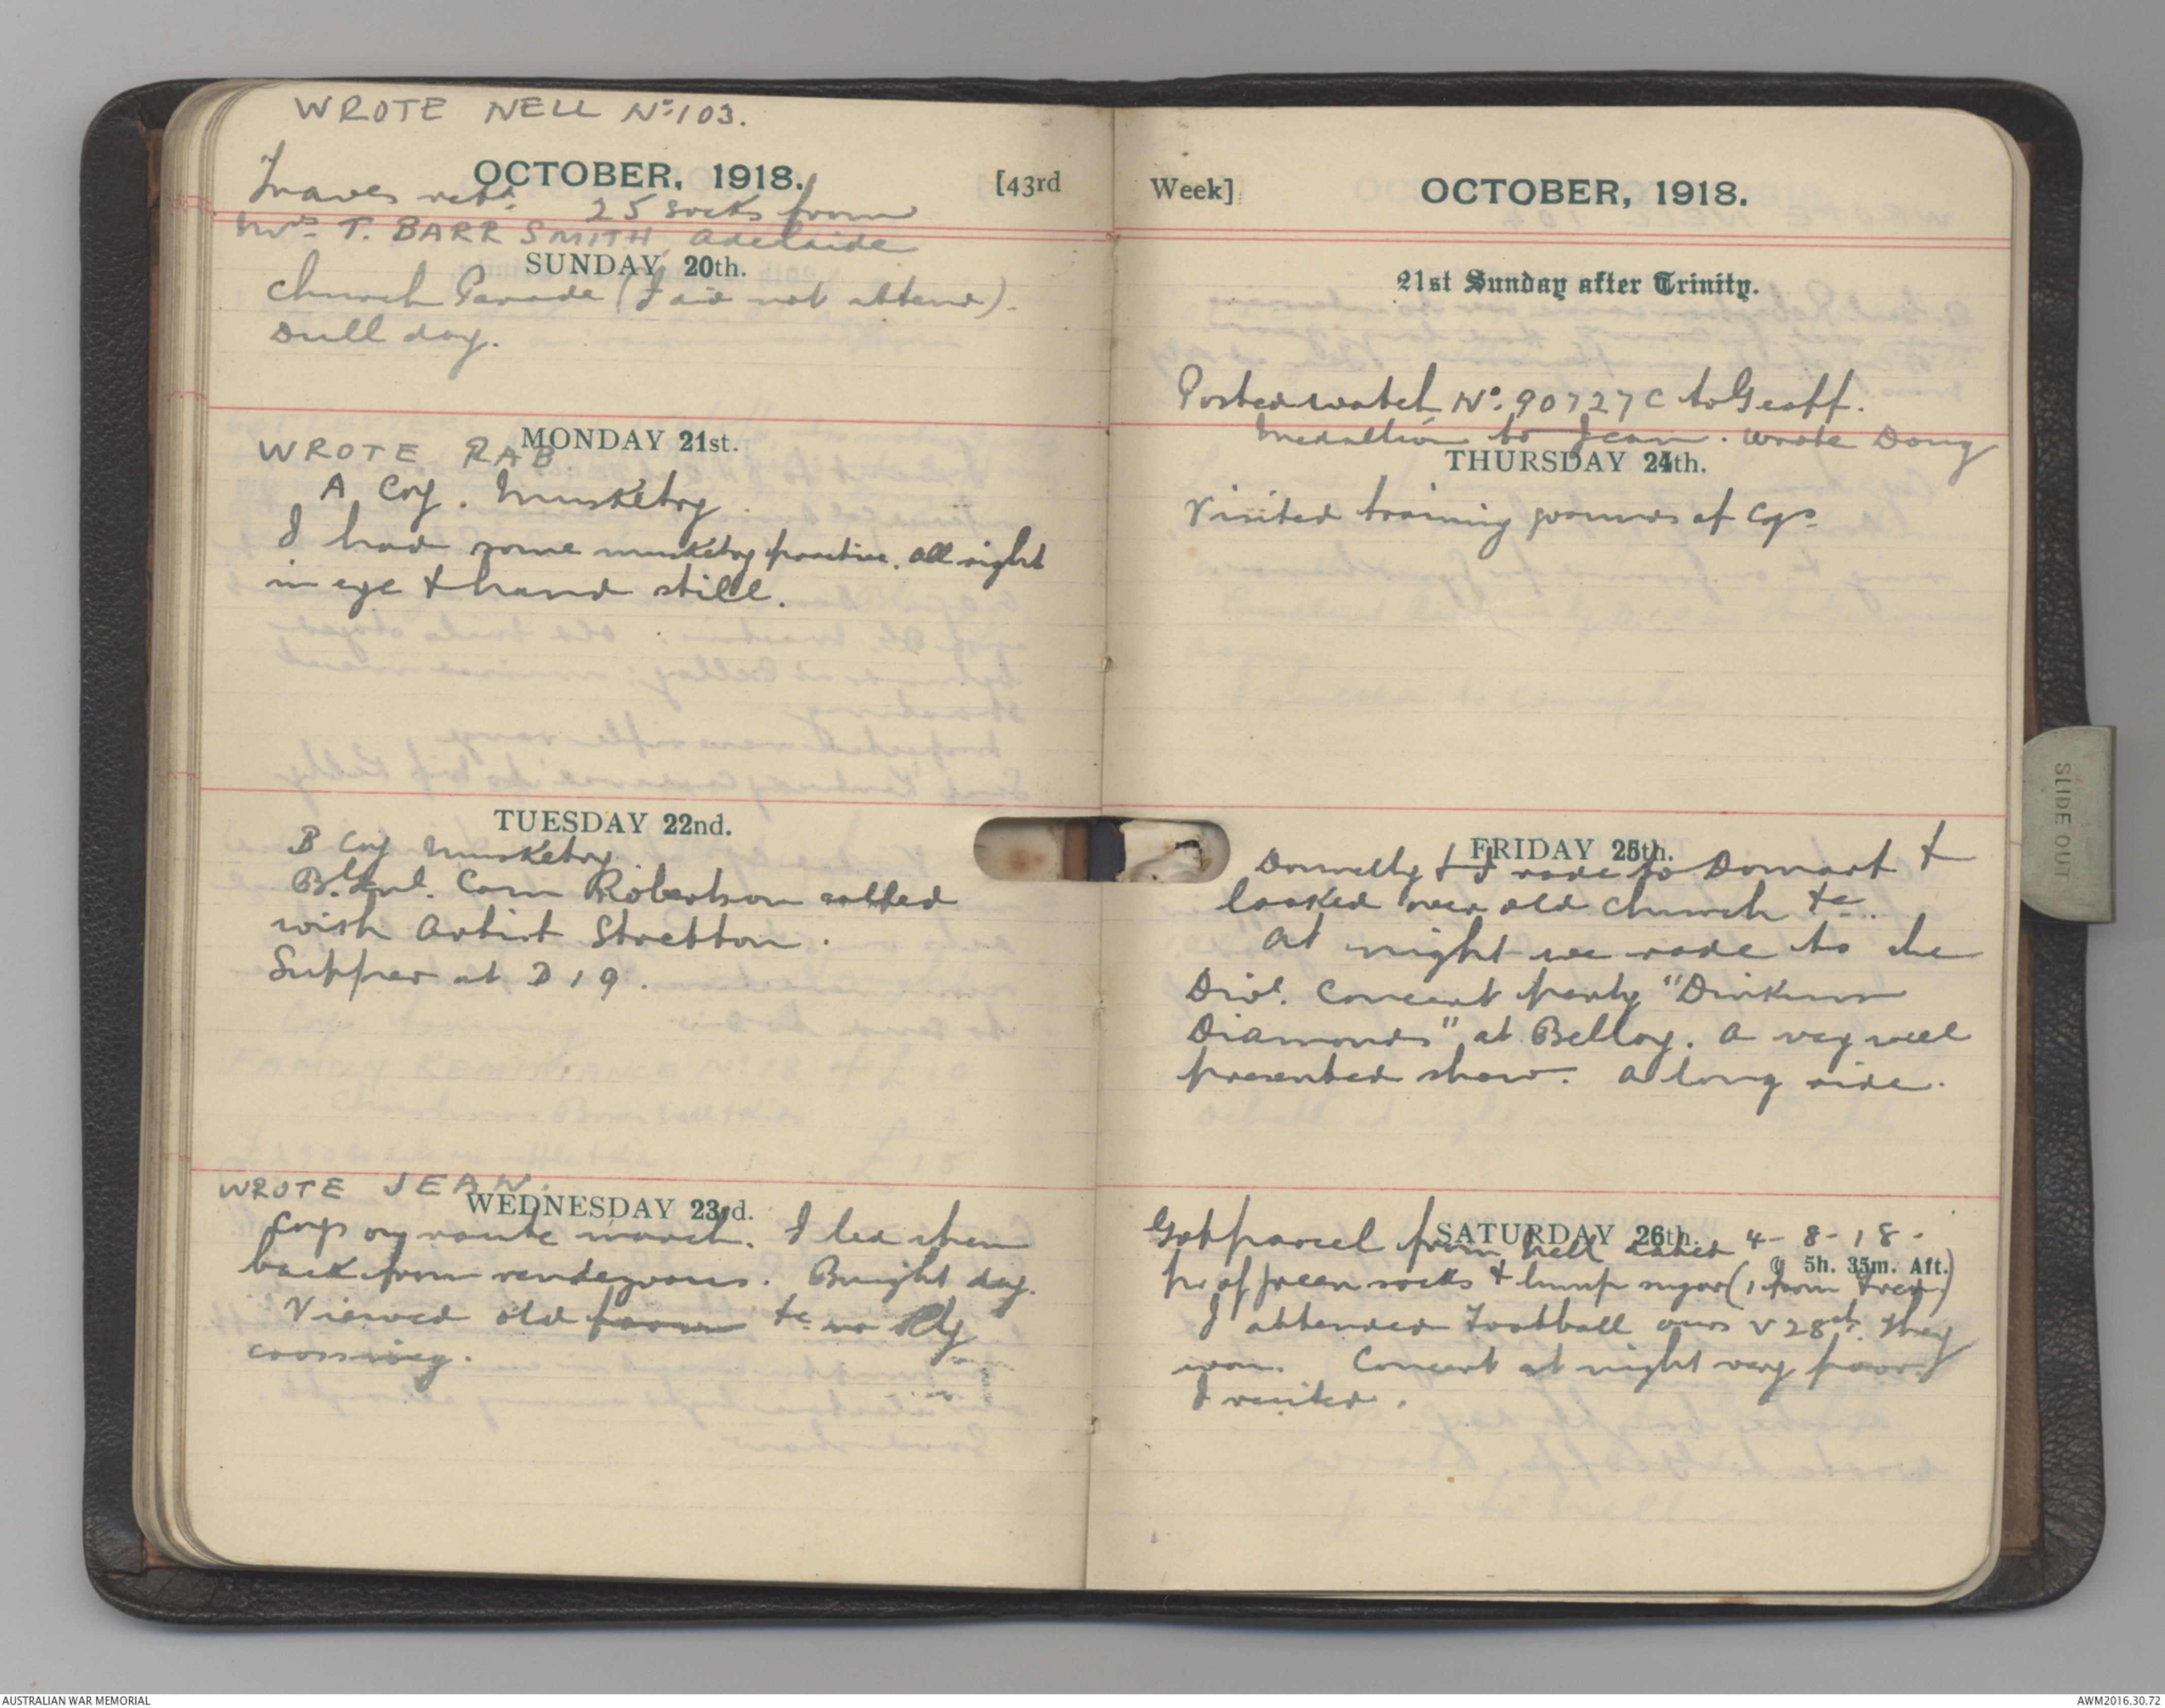 WROTE NELL No. 103.
OCTOBER, 1918. [43rd
Graves retd. 25 socks from
Mrs T. BARR SMITH, Adelaide
SUNDAY 20th.
Church Parade (I did not attend).
Dull day.
MONDAY 21st.
WROTE RAB.
A Coy. Musketry.
I had some musketry practice. All right
in eye & hand still.
TUESDAY 22nd.
B Coy Musketry.
B. Genl. Cam Robertson called
with Artist Streeton.
Supper at D 19.
WROTE JEAN.
WEDNESDAY 23rd.
Coys on route march. I led them
back from rendezvous. Bright day.
Viewed old farm &c Rly
crossing.
Week] OCTOBER, 1918.
21st Sunday after Trinity.
Posted watch No. 90727C to Geoff.
Medallion to Jean. Wrote Doug
THURSDAY 24th.
Visited training grounds of Coys
FRIDAY 25th.
Donnelly & I rode to Domart &
looked over old church &c.
At night we rode to the
Divl. Concert party "Dinkum
Diamonds" at Belloy. A very well
presented show. A long ride.
SATURDAY 26th.
Got parcel from Nell dated 4-8-18.
5h. 35m. Aft.
pr of green socks & lump sugar (1 from Trev.)
I attended Football ours v 28th. They
won. Concert at night very poor.
I recited.
SLIDE OUT
AUSTRALIAN WAR MEMORIAL
AWM2016.30.72